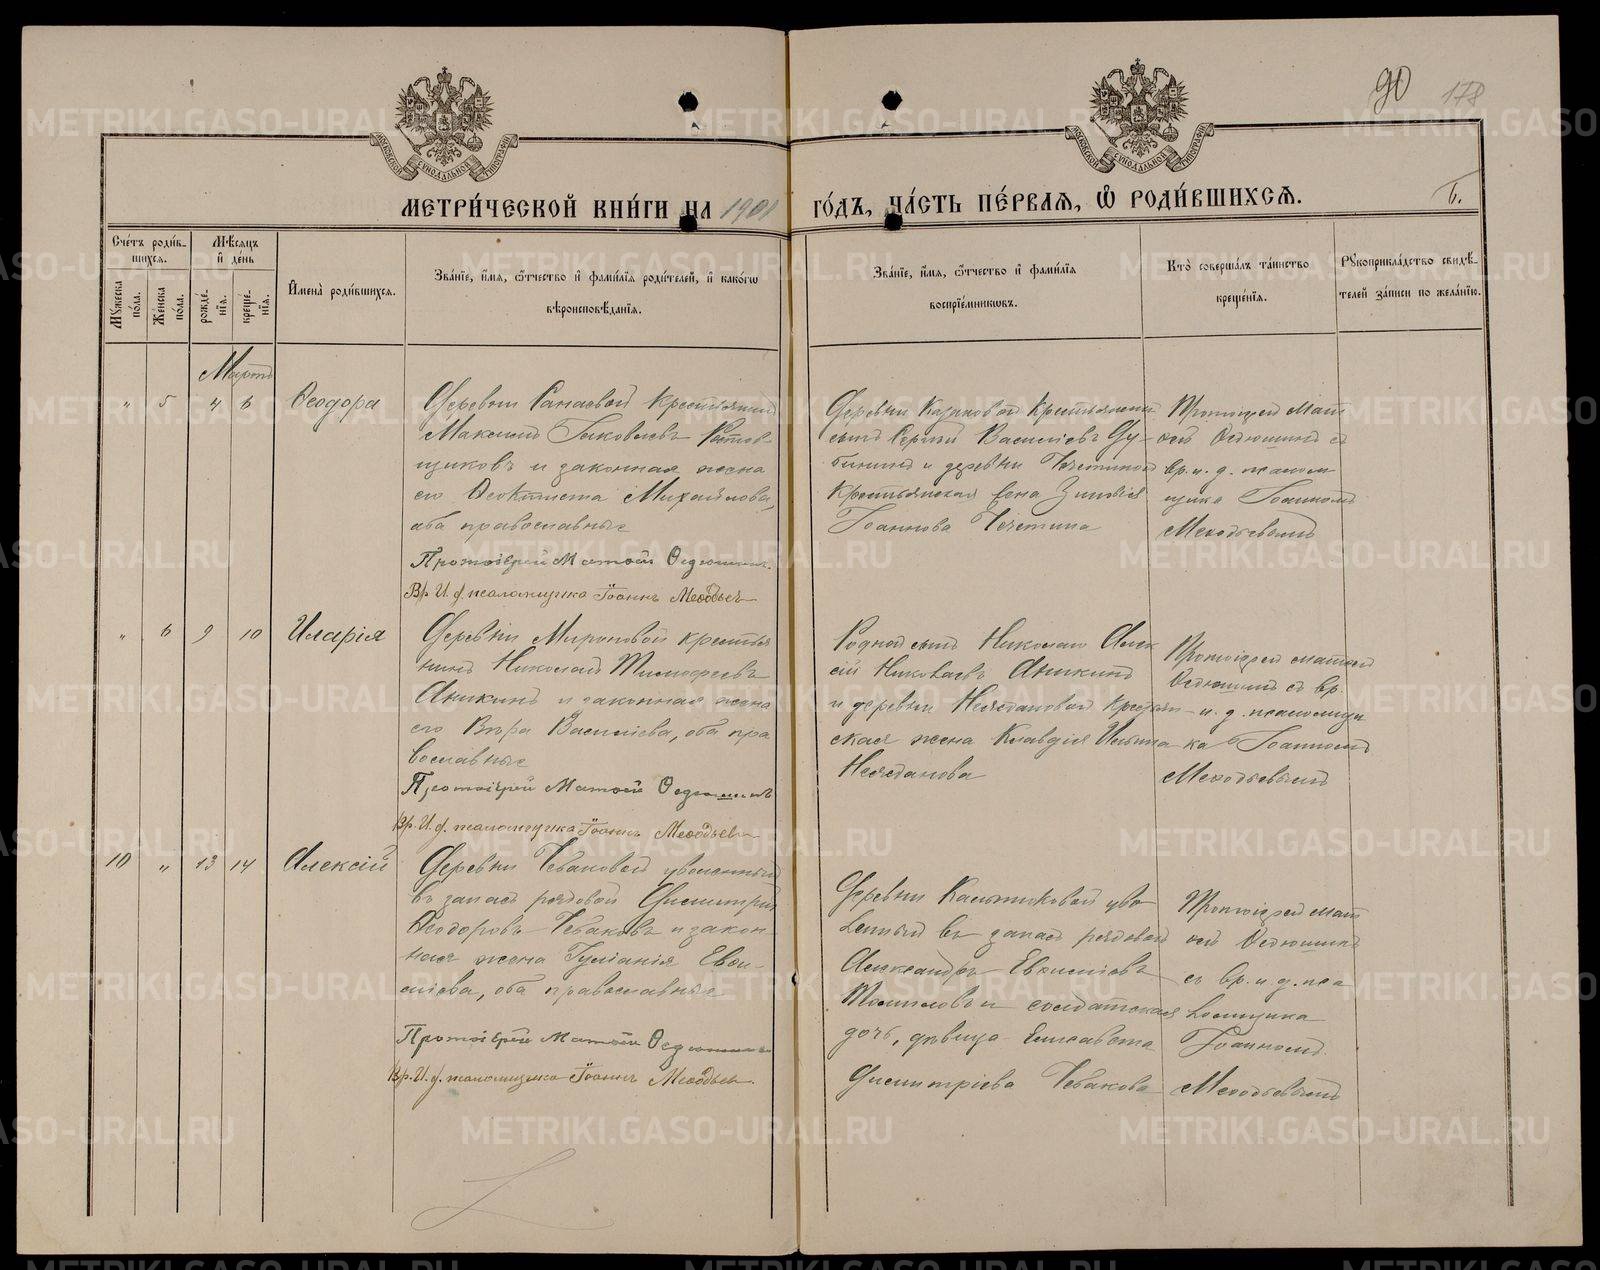 90 178
МЕТРИ́ЧЕСКОЙ КНИ́ГИ НА 1901 ГО́ДЪ, ЧА́СТЬ ПЕ́РВАЯ, Ѡ РОДИ́ВШИХСЯ.
Сче́тъ роди́в-
шихся.
Мꙋ́жеска по́ла.
Же́нска по́ла.
Мѣ́сяцъ
и҆ де́нь
рожде́-
нїя.
креще-
нїя.
И҆мена̀ роди́вшихся.
Зва́нїе, и҆́мя, ѻ҆́тчество и҆ фами́лїя роди́телей, и҆ како́гѡ
вѣроисповѣ́данїя.
Зва́нїе, и҆́мя, ѻ҆́тчество и҆ фами́лїя
воспрїе́мникѡвъ.
Кто̀ соверша́лъ та́инство
креще́нїя.
Рꙋкоприкла́дство свидѣ́-
телей за́писи по жела́нїю.
Мартъ
" 5 4 6 Ѳеодора
Деревни крестьянинъ
Максимъ Іаковлевъ
щиковъ и законная жена
его Ѳеоктиста Михайлова,
оба православные
Протоіерей Матѳей Ѳедюшинъ.
Вр. И. д. псаломщика Іоаннъ Меѳодьевъ
Деревни Казаковой крестьянскій
сынъ Сергій Василіевъ Ду-
бининъ и деревни
крестьянская жена Зиновія
Іоаннова
Протоіерей Матѳ
ѳей Ѳедюшинъ съ
вр. и. д. псалом
щика Іоанномъ
Меѳодьевымъ
" 6 9 10 Иларія
Деревни Мироновой крестья
нинъ Николай Тимоѳеевъ
Аникинъ и законная жена
его Вѣра Василіева, оба пра
вославные
Протоіерей Матѳей Ѳедюшинъ
Вр. И. д. псаломщика Іоаннъ Меѳодьевъ
Родной сынъ Николая Алек
сій Николаевъ Аникинъ
и деревни Неждановой крестьян
ская жена Клавдія Ильина
Нежданова
Протоіерей Матѳей
Ѳедюшинъ съ вр.
и. д. псаломщи
ка Іоанномъ
Меѳодьевымъ
10 " 13 14 Алексій
Деревни Чебаковой уволенный
въ запасъ рядовой Димитрій
Ѳеодоровъ Чебаковъ и закон-
ная жена Іуліанія Евѳи-
міева, оба православные
Протоіерей Матѳей Ѳедюшинъ
Вр. И. д. псаломщика Іоаннъ Меѳодьевъ.
Деревни Калтыковой уво
ленный въ запасъ рядовой
Александръ Евѳиміевъ
Томиловъ и солдатская
дочь, дѣвица Елисавета
Димитріева Чебакова
Протоіерей Матѳ
ѳей Ѳедюшинъ
съ вр. и д. пса
ломщика
Іоанномъ
Меѳодьевымъ